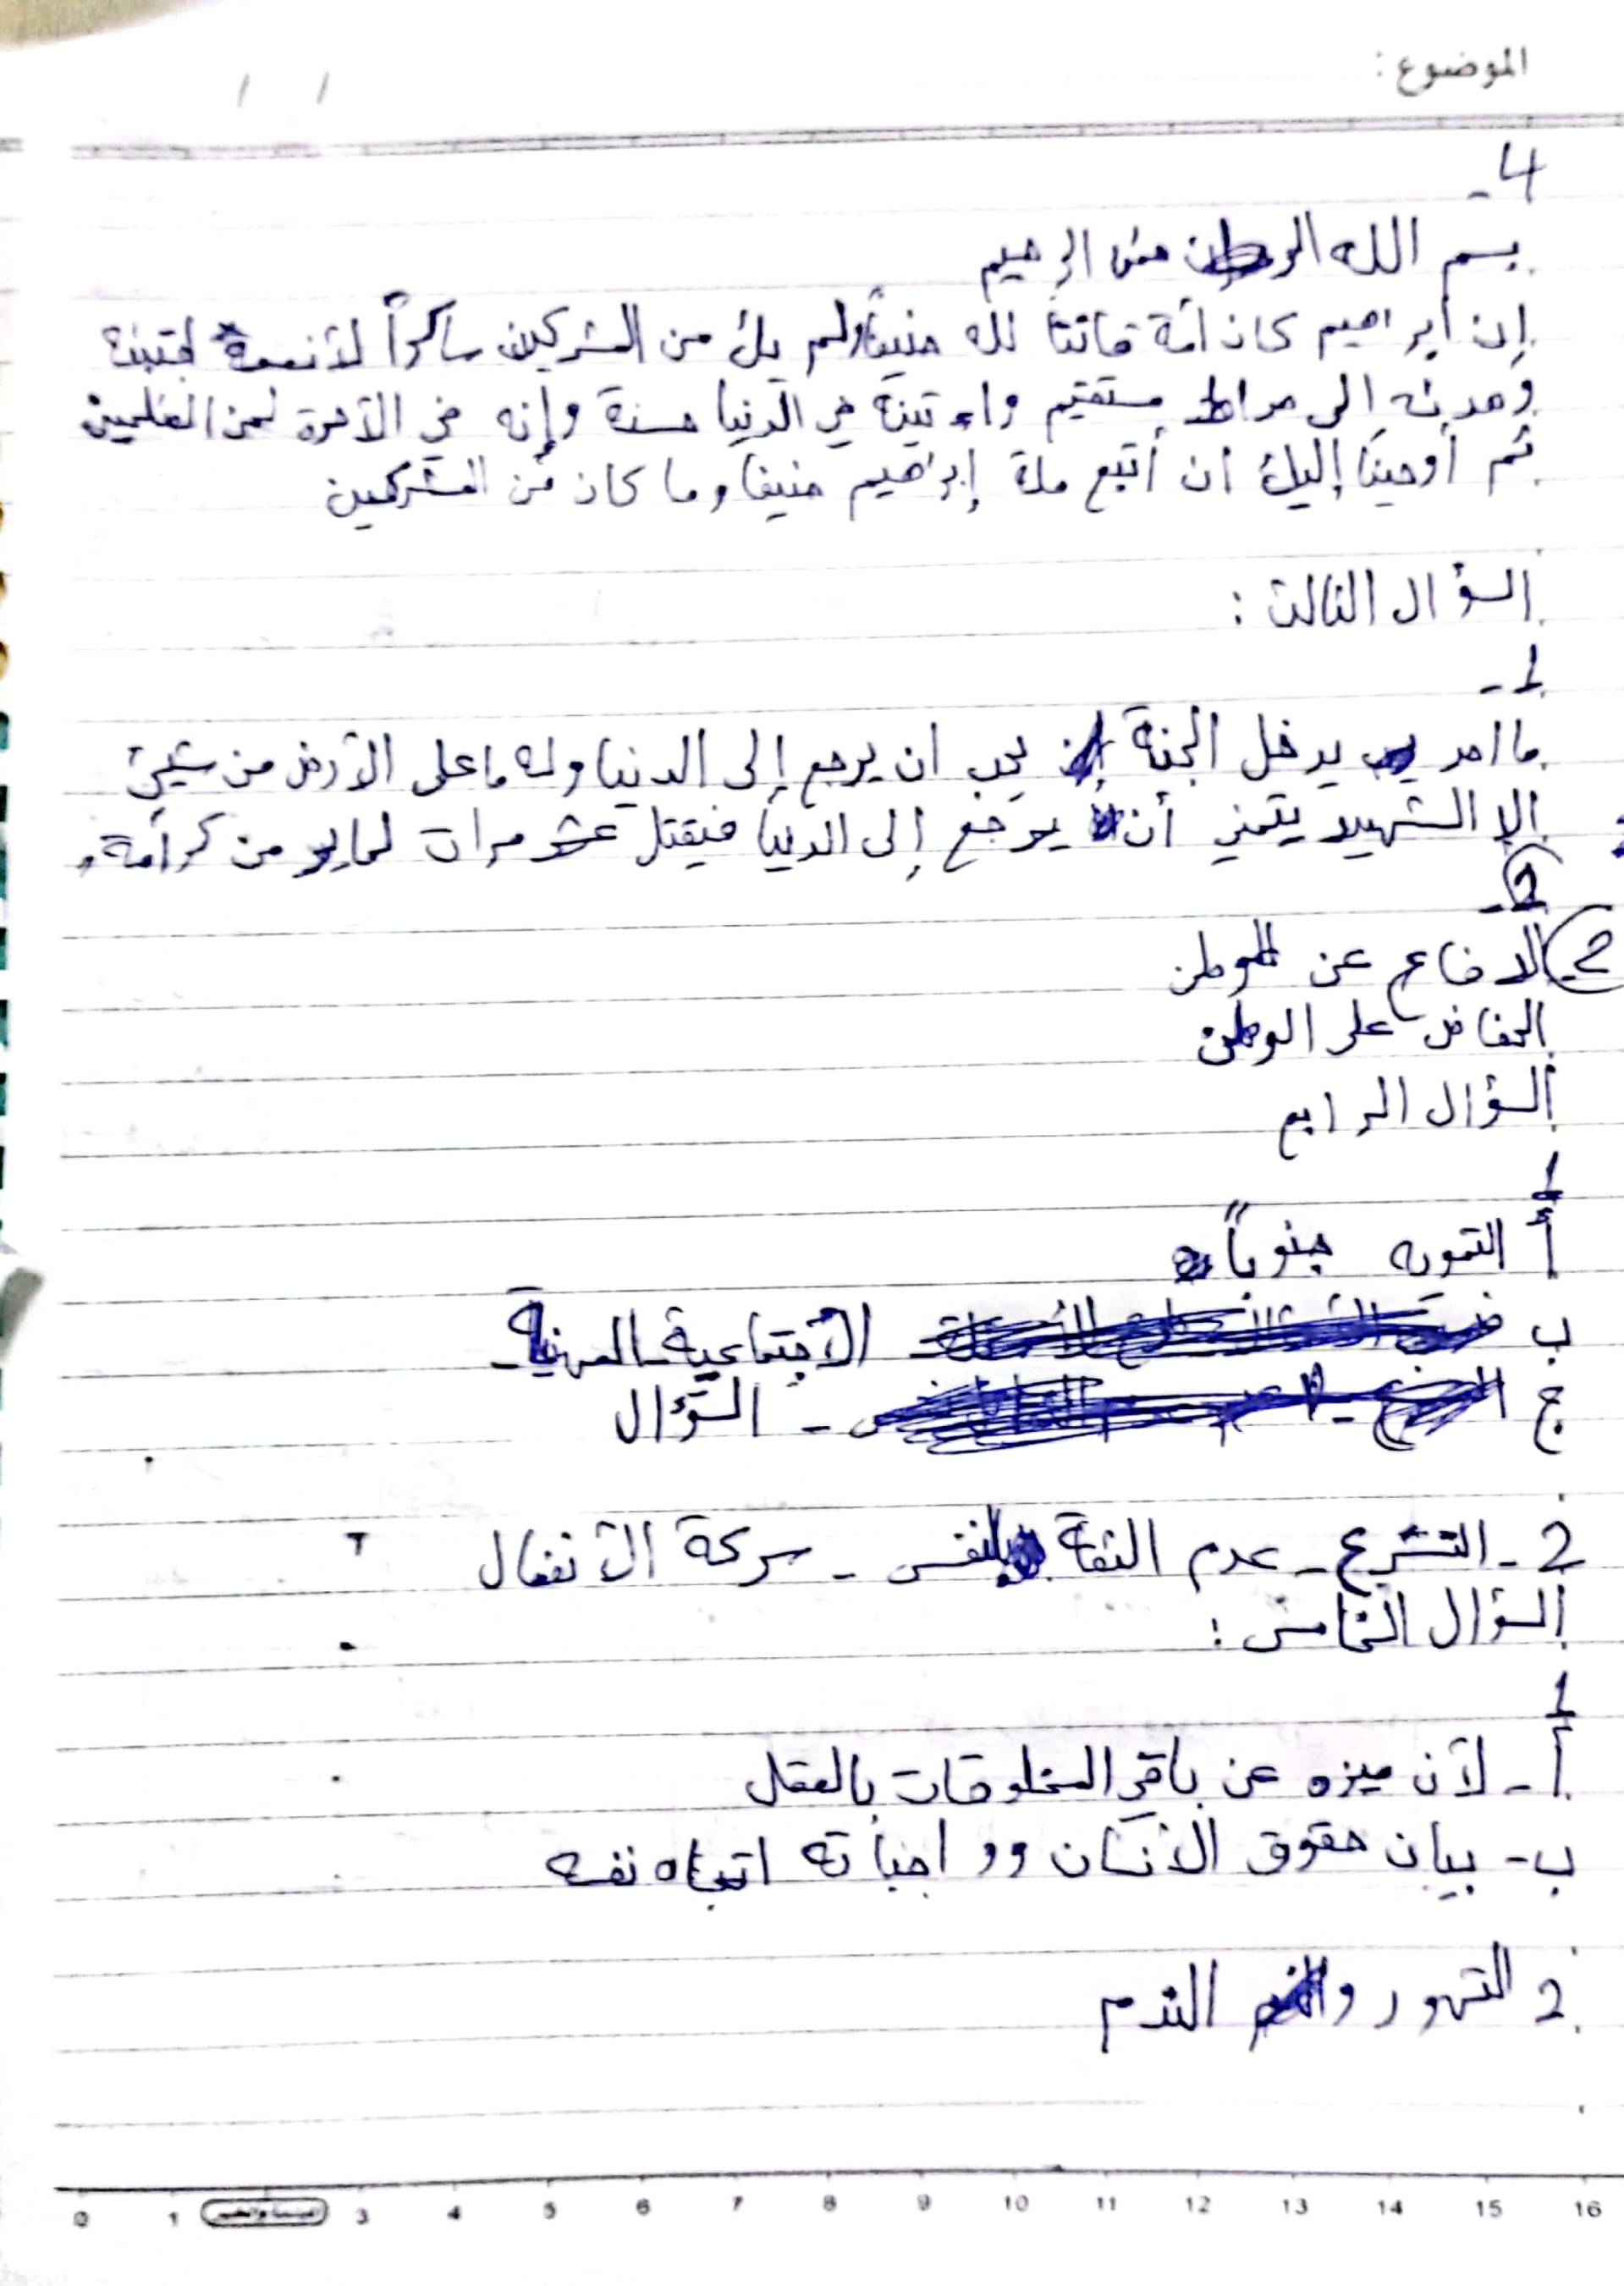 الموضوع :
/ /
4-
بسم الله الرحمن الرحيم
إن أبراهيم كان أمة قانتا لله حنيفاً ولم يك من المشركين ساكراً لأنعمه اجتبئه
وهدئه إلى صراط مستقيم واءتينه في الدنيا حسنة وإنه في الآخرة لمن الصلحين
ثم أوحينا إليك ان أتبع ملة إبراهيم حنيفا وما كان من المشركين
السؤال الثالث :
1-
ما احد يدخل الجنة يحب ان يرجع إلى الدنيا وله ما على الأرض من شيئ
إلا الشهيد يتمنى أن يرجع إلى الدنيا فيقتل عشر مرات لما ير من كرامة.
2-
2- الدفاع عن الموطن
الحفاض على الوطن
السؤال الرابع
1
أ التموره جنوباً
ب الأجتماعية - المهنية -
ج - السؤال
2 - التسرع - عدم الثقة بلنفس - سركة الأنفعال
السؤال الخامس :
1
أ - لأن ميزه عن باقي المخلوقات بالعقل
ب - بيان حقوق الأنسان وواجباته اتجاه نفسه
2 التهور و الندم
0 1 3 4 5 6 7 8 9 10 11 12 13 14 15 16